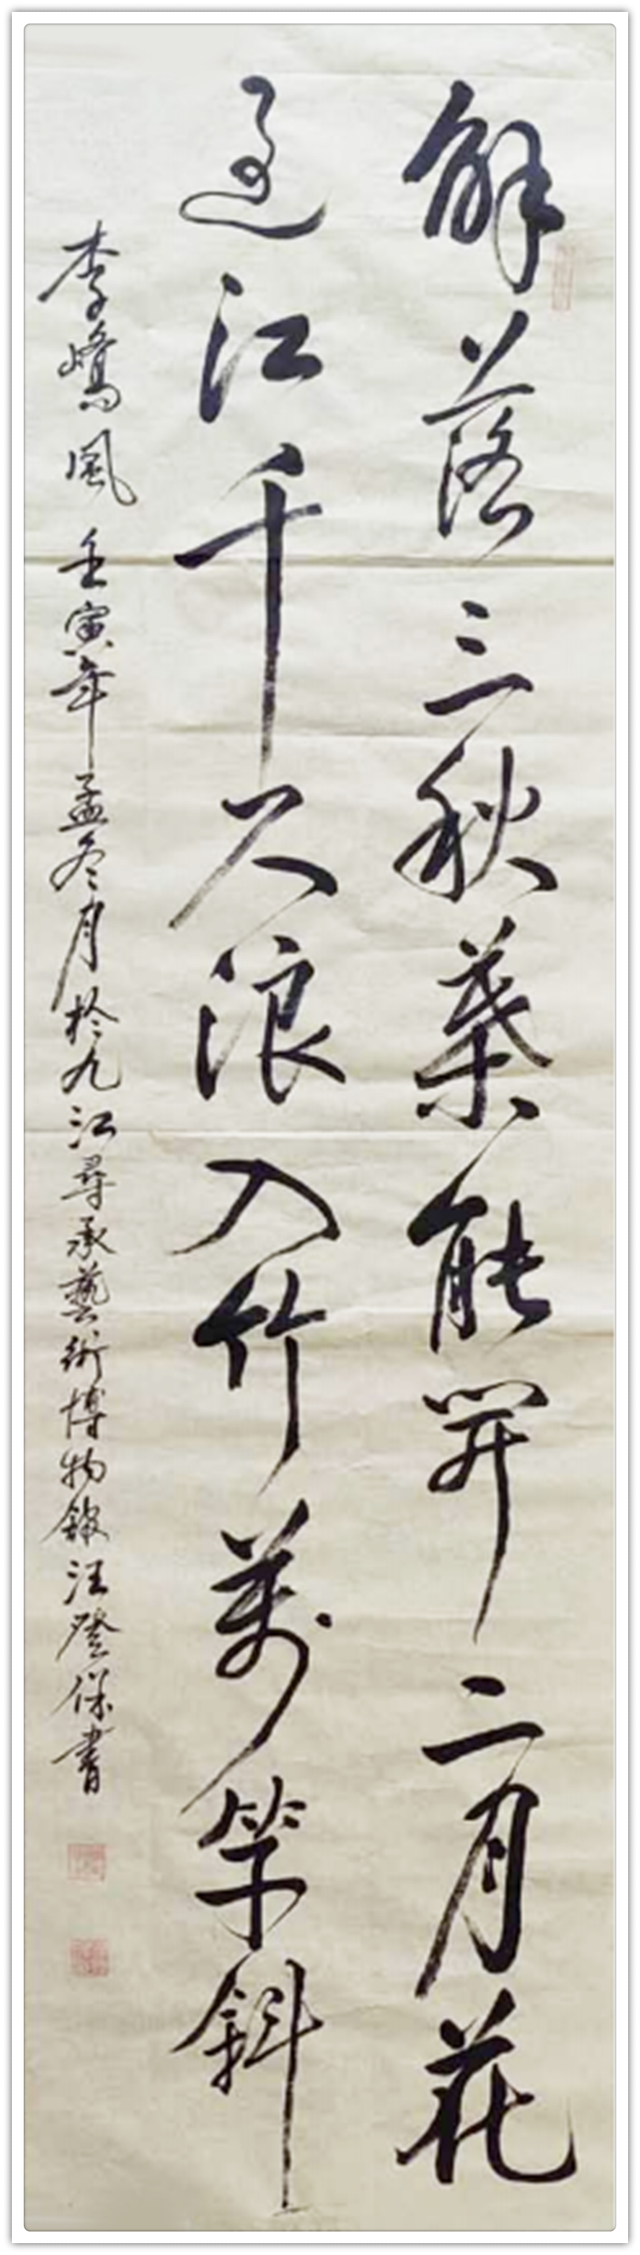 解落三秋葉能開二月花
過江千尺浪入竹萬竿斜
李嶠風壬寅年孟冬月於九江尋承藝術博物館汪登保書